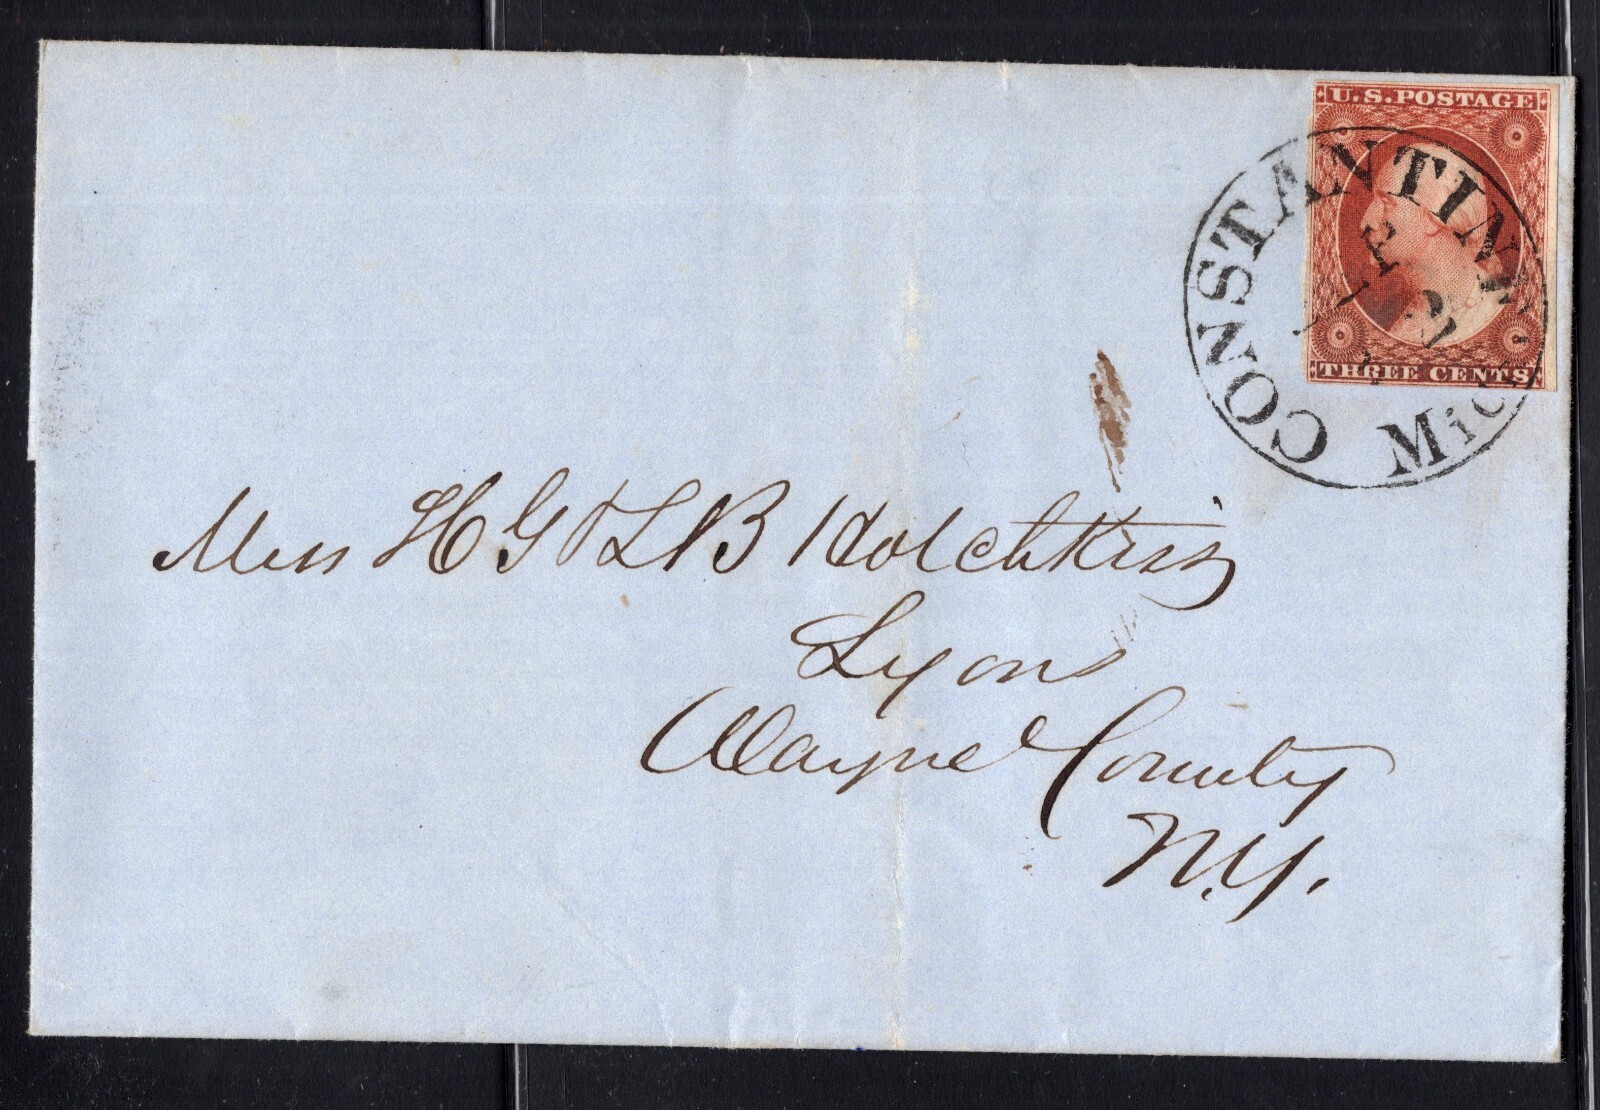 U.S. POSTAGE
THREE CENTS
CONSTANTINE
Mic
Mess H G & L B Hotchkiss
Lyons
Wayne County
N.Y.